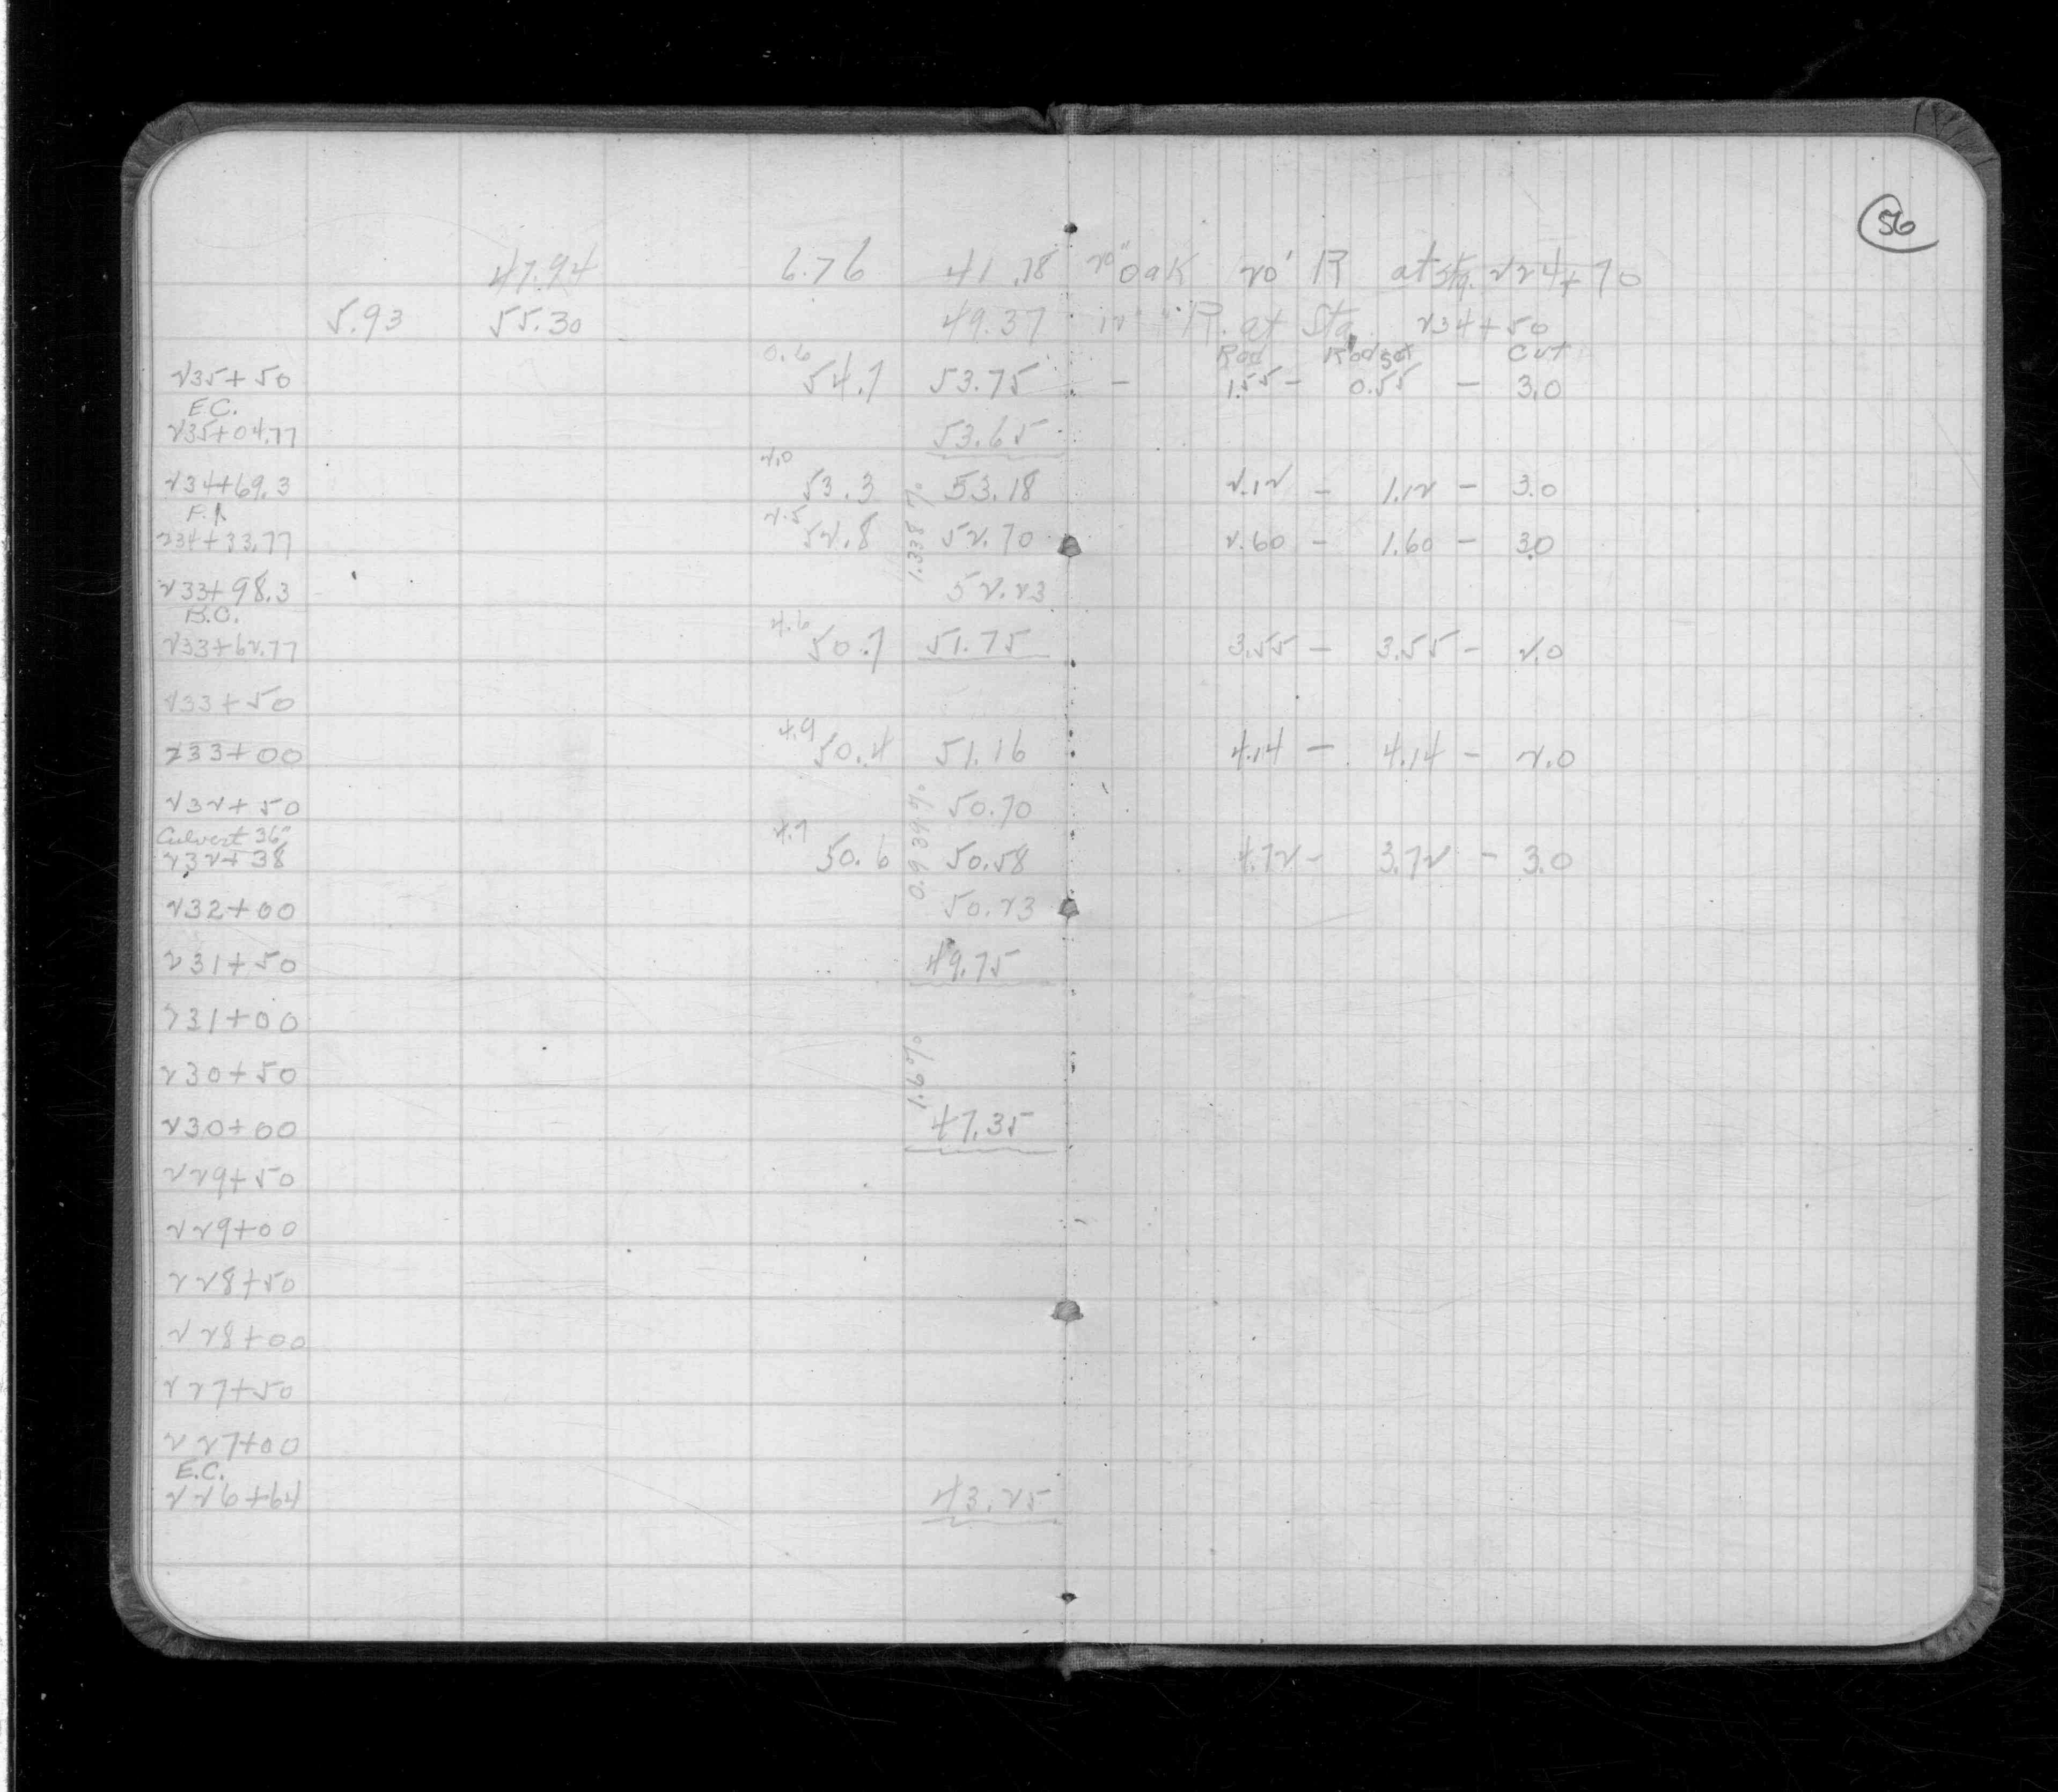 56
47.94 6.76 41.18 20" oak 20' R at Sta. 224+70
5.93 55.30 49.37 12" " R. at Sta. 234+50
Rod Rodset Cut
0.6
235+50 54.7 53.75 - 1.55 - 0.55 - 3.0
E.C.
235+04.77 53.65
2.0
234+69.3 53.3 53.18 2.12 - 1.12 - 3.0
P.I.
2.5
234+33.77 52.8 52.70 2.60 - 1.60 - 3.0
1.338 %
233+98.3 52.23
B.C.
4.6
233+62.77 50.7 51.75 3.55 - 3.55 - 2.0
233+50
4.9
233+00 50.4 51.16 4.14 - 4.14 - 2.0
232+50 50.70
0.939 %
Culvert 36"
4.7
232+38 50.6 50.58 4.72 - 3.72 - 3.0
232+00 50.23
231+50 49.75
231+00
230+50
1.6 %
230+00 47.35
229+50
229+00
228+50
228+00
227+50
227+00
E.C.
226+64 43.25